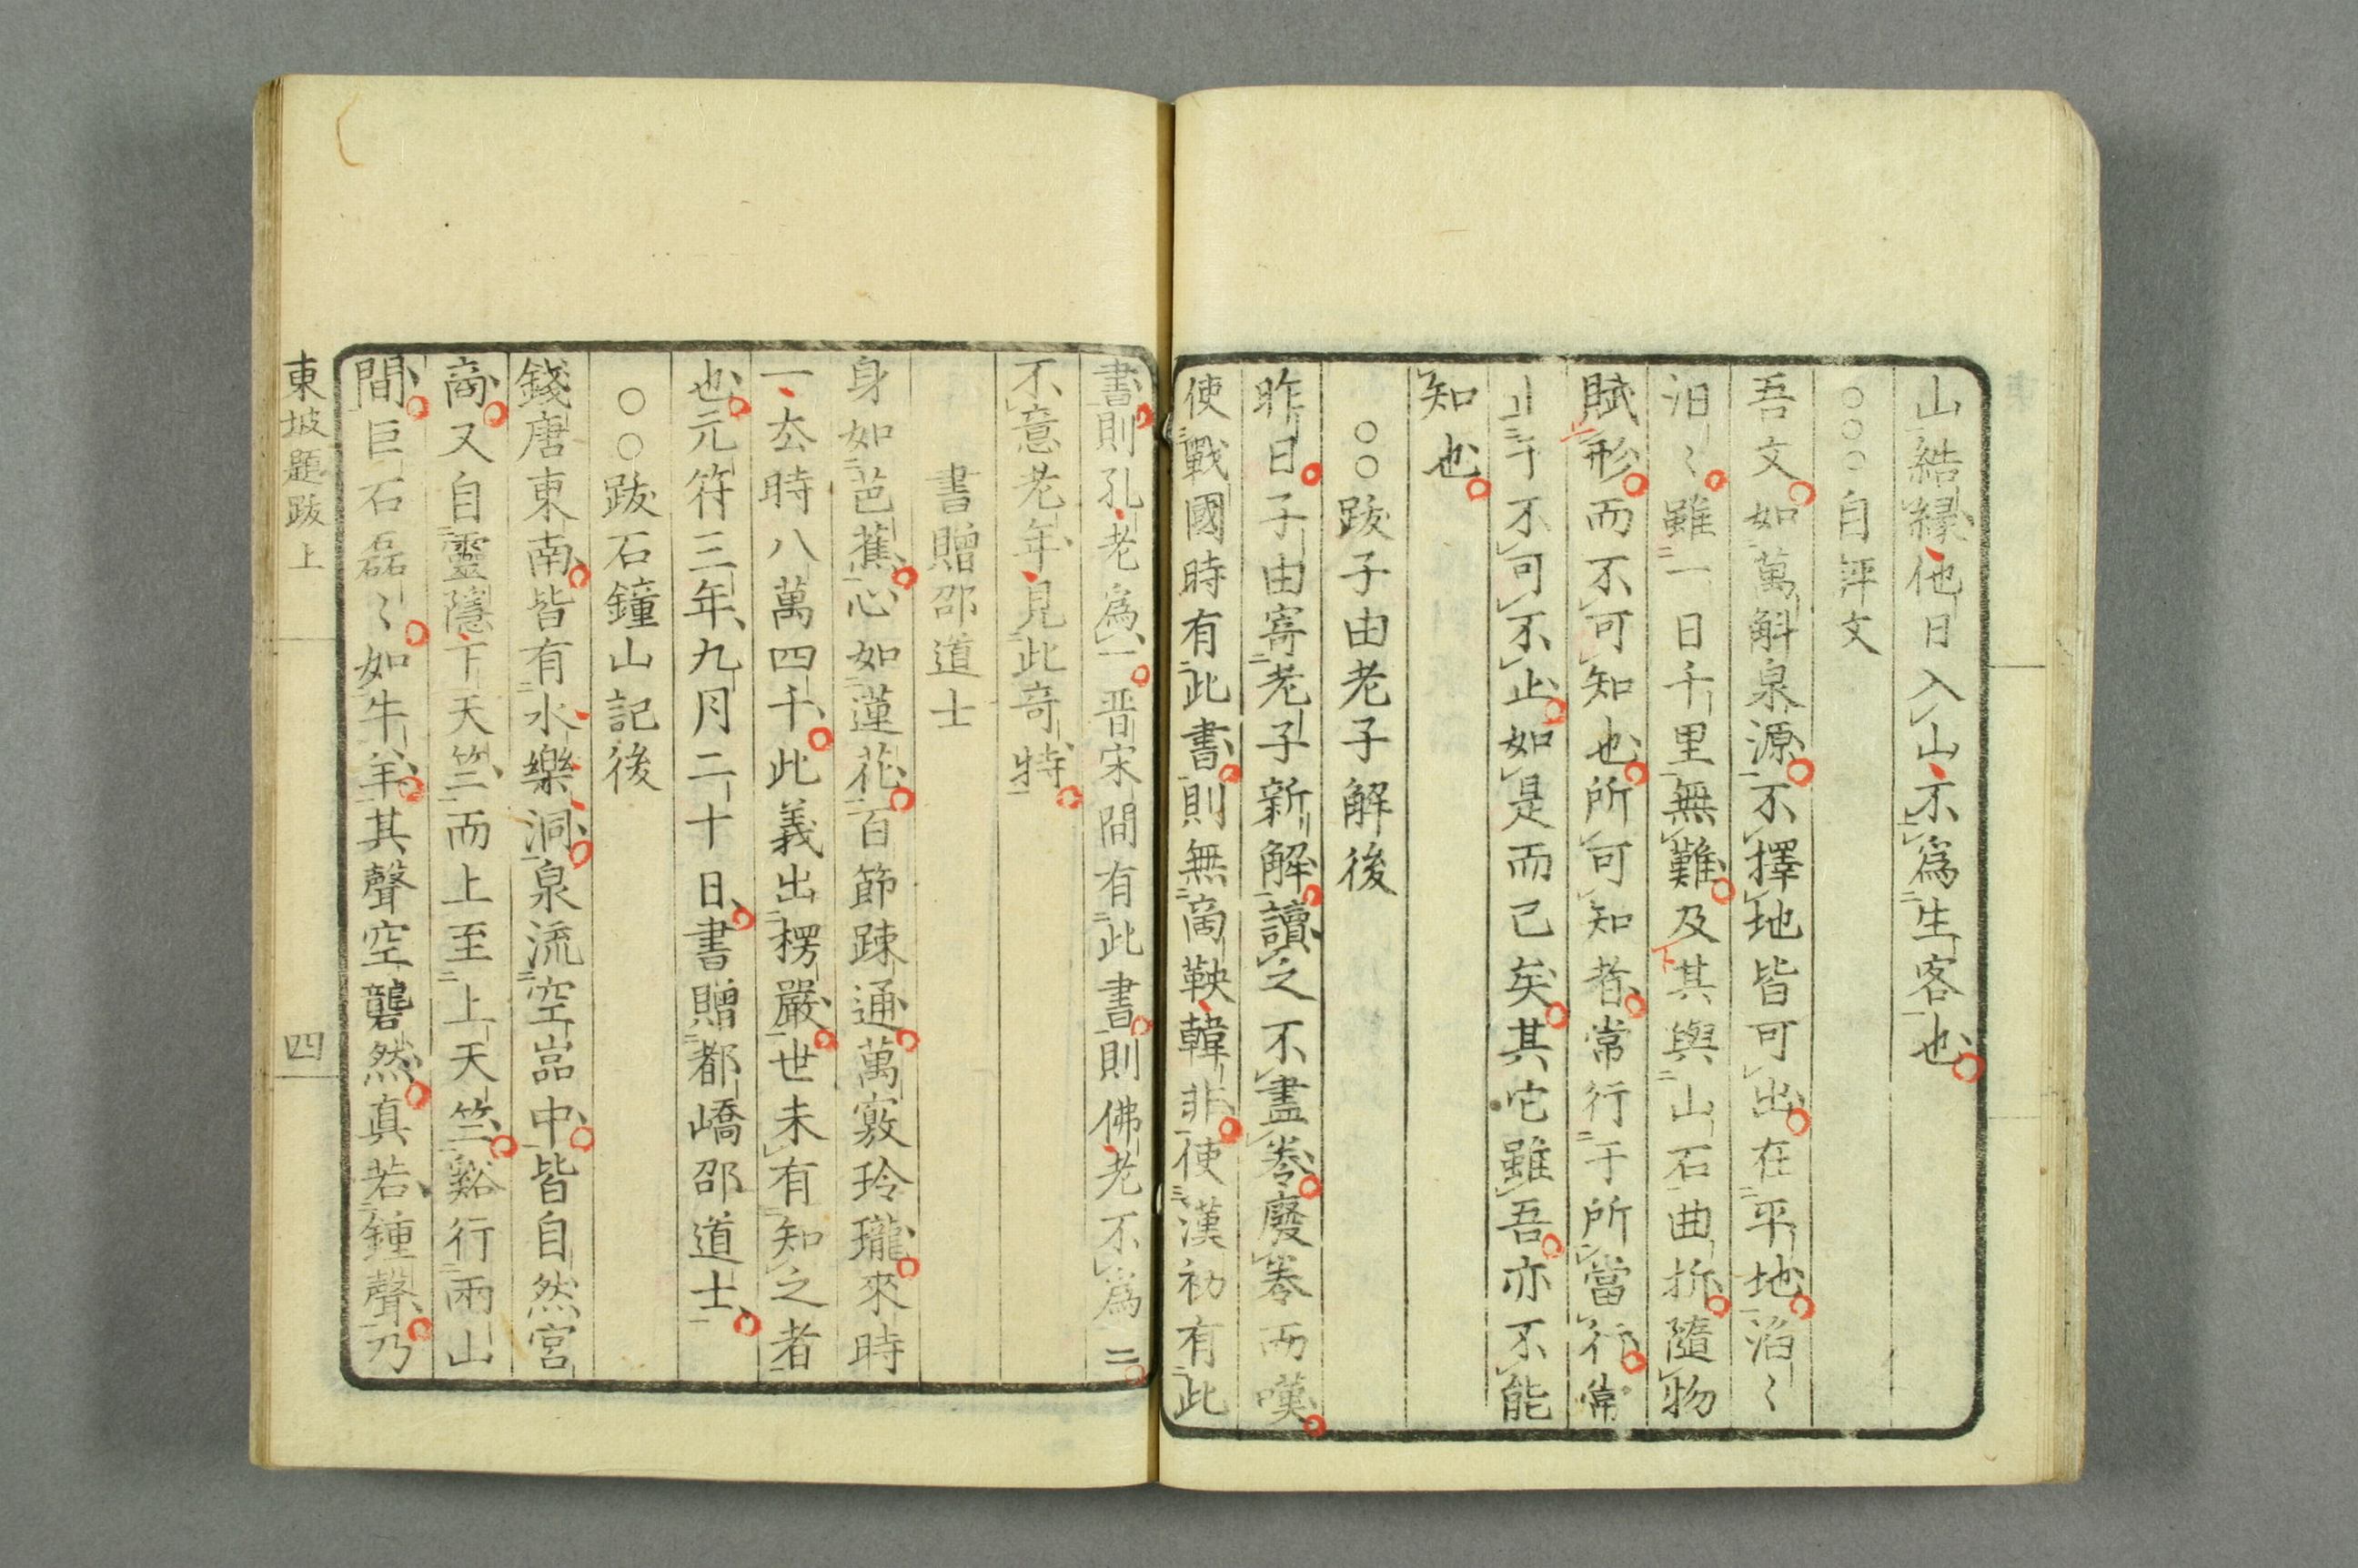 山結緣他日入山不爲生客也
○○○自評文
吾文如萬斛泉源不擇地皆可出在平地滔〻
汩〻雖一日千里無難及其與山石曲折隨物
賦形而不可知也所可知者常行于所當行常
止于不可不止如是而已矣其它雖吾亦不能
知也
○○跋子由老子解後
昨日子由寄老子新解讀之不盡卷廢卷而嘆
使戰國時有此書則無商鞅韓非使漢初有此
書則孔老爲一晉宋間有此書則佛老不爲二
不意老年見此奇特
書贈邵道士
身如芭蕉心如蓮花百節踈通萬竅玲瓏來時
一去時八萬四千此義出楞嚴世未有知之者
也元符三年九月二十日書贈都嶠邵道士
○○跋石鐘山記後
錢唐東南皆有水樂洞泉流空嵓中皆自然宮
商又自靈隱下天竺而上至上天竺谿行兩山
間巨石磊〻如牛羊其聲空礱然真若鍾聲乃
東坡題跋上
四